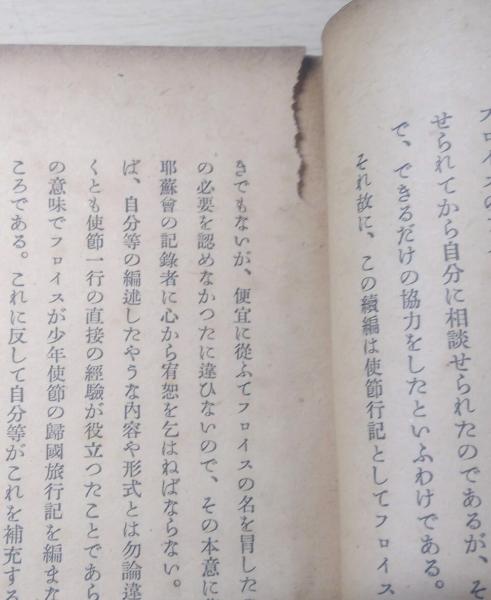 フロイスの
せられてから自分に相談せられたのであるが、そ
で、できるだけの協力をしたといふわけである。
それ故に、この續編は使節行記としてフロイス
きでもないが、便宜に從ふてフロイスの名を冒した
の必要を認めなかつたに違ひないので、その本意に
耶蘇會の記錄者に心から宥恕を乞はねばならない。
ば、自分等の編述したやうな內容や形式とは勿論違
くとも使節一行の直接の經驗が役立つたことであら
の意味でフロイスが少年使節の歸國旅行記を編まな
ころである。これに反して自分等がこれを補充する